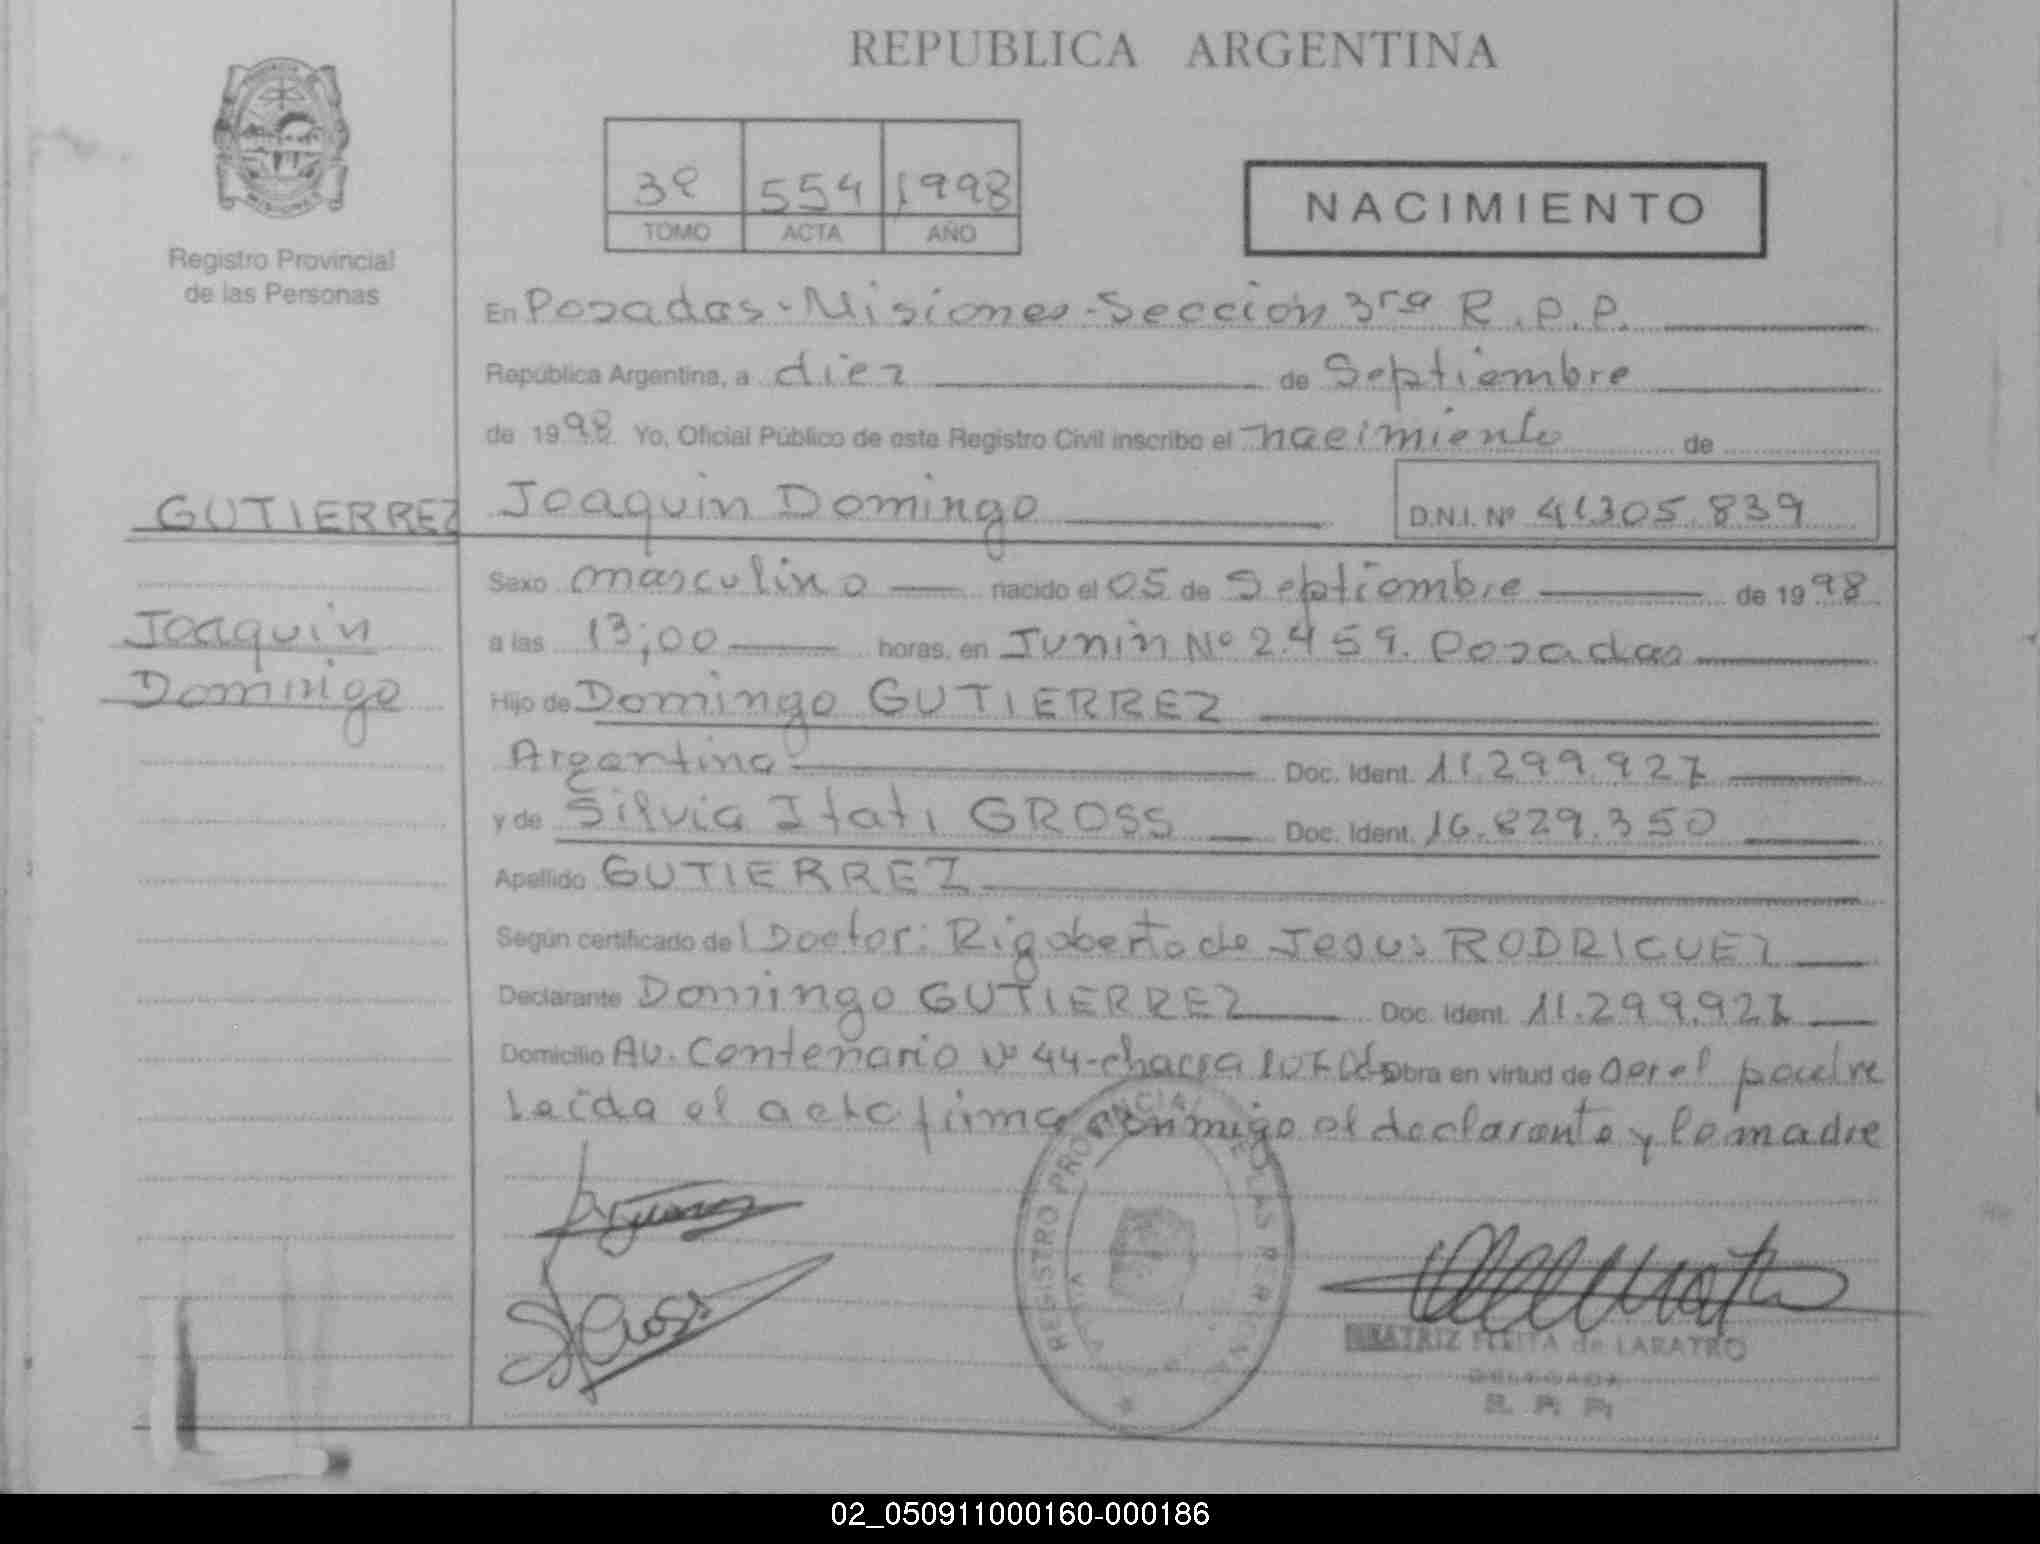 REPUBLICA ARGENTINA
3º 554 1998
TOMO ACTA AÑO
NACIMIENTO
Registro Provincial
de las Personas
En Posadas - Misiones - Sección 3ra R.P.P.
República Argentina, a diez de Septiembre
de 1998 Yo, Oficial Público de este Registro Civil inscribo el nacimiento de
GUTIERREZ Joaquin Domingo D.N.I. Nº 41.305.839
Joaquin
Domingo
Sexo masculino nacido el 05 de Septiembre de 1998
a las 13;00 horas, en Junin Nº 2.459. Posadas
Hijo de Domingo GUTIERREZ
Argentino Doc. Ident. 11.299.927
y de Silvia Itati GROSS Doc. Ident. 16.829.350
Apellido GUTIERREZ
Según certificado del Doctor: Rigoberto de Jesus RODRIGUEZ
Declarante Domingo GUTIERREZ Doc. Ident. 11.299.927
Domicilio Av. Centenario Nº 44-chacra Obra en virtud de ser el padre
Leida el acta firma conmigo el declarante y la madre
REGISTRO PROVINCIAL DE LAS P
BEATRIZ de LARATRO
DELEGADA
R. P. P.
02_050911000160-000186